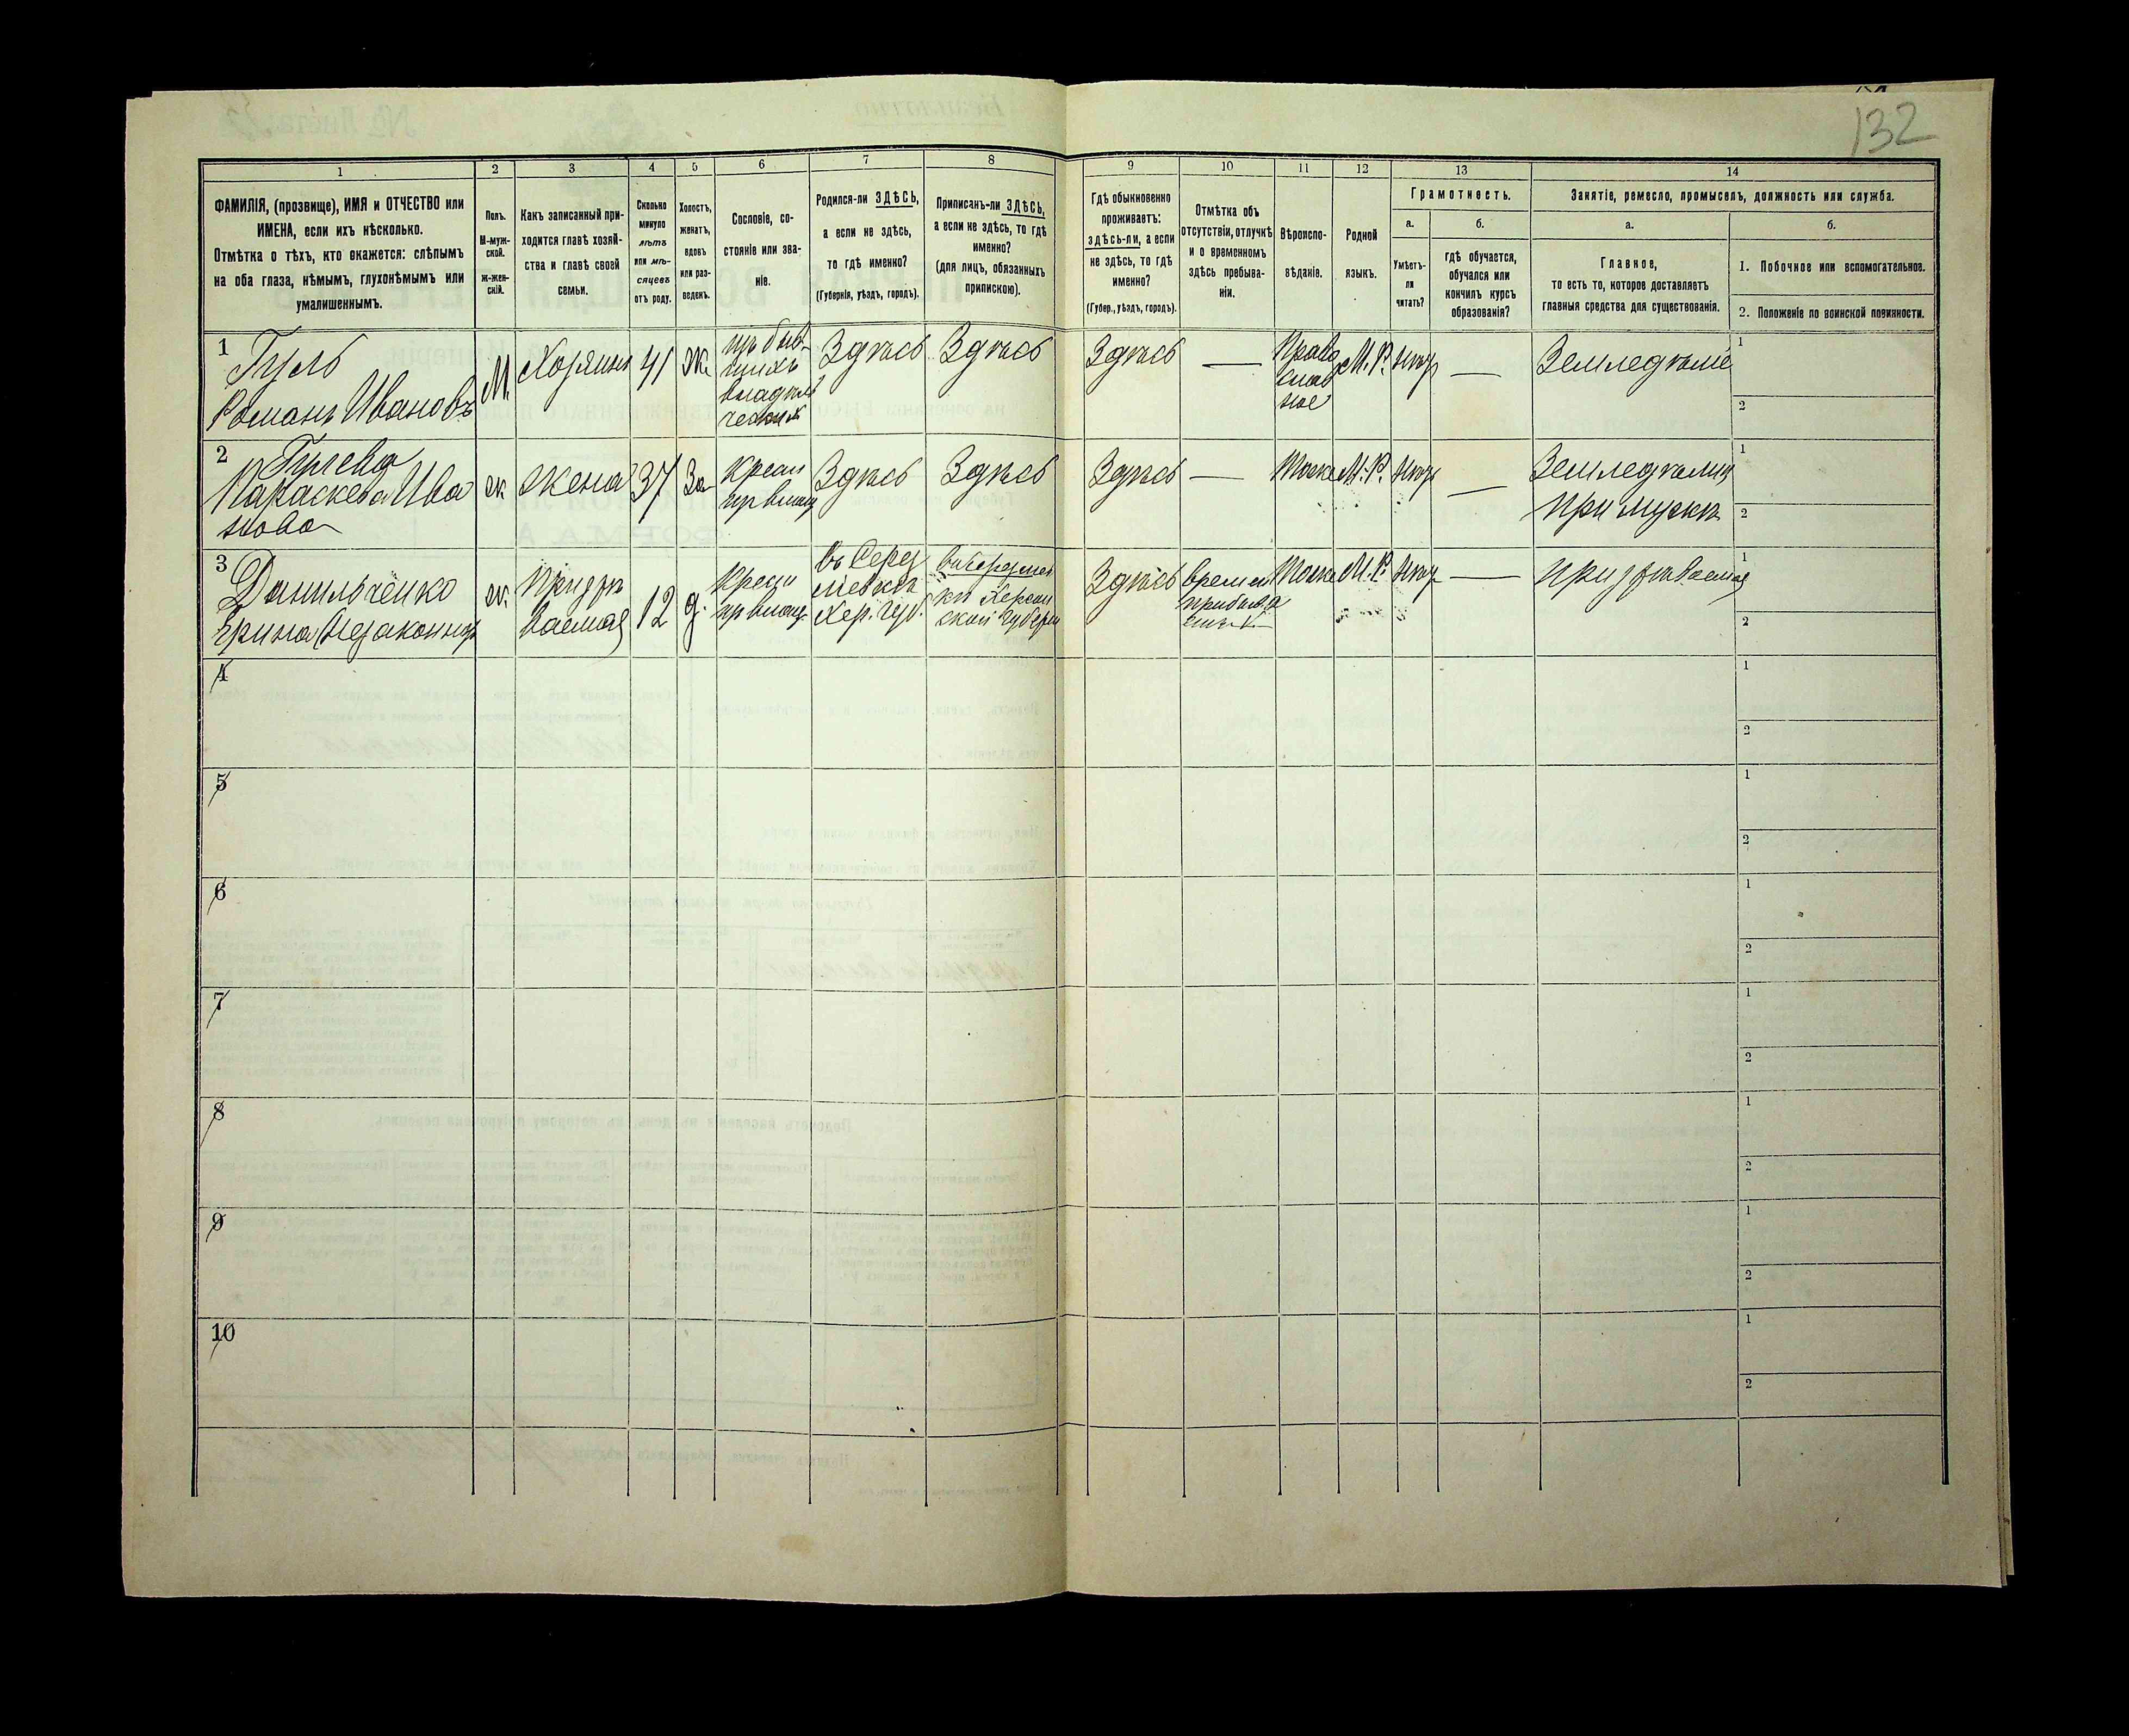 132
1
2
3
4
5
6
7
8
9
10
11
12
13
14
ФАМИЛІЯ, (прозвище), ИМЯ и ОТЧЕСТВО или
ИМЕНА, если ихъ нѣсколько.
Отмѣтка о тѣхъ, кто окажется: слѣпымъ
на оба глаза, нѣмымъ, глухонѣмымъ или
умалишеннымъ.
Полъ.
М-муж-
ской.
ж-жен-
скій.
Какъ записанный при-
ходится главѣ хозяй-
ства и главѣ своей
семьи.
Сколько
минуло
лѣтъ
или мѣ-
сяцевъ
отъ роду.
Холостъ,
женатъ,
вдовъ
или раз-
веденъ.
Сословіе, со-
стояніе или зва-
ніе.
Родился-ли ЗДѢСЬ,
а если не здѣсь,
то гдѣ именно?
(Губернія, уѣздъ, городъ).
Приписанъ-ли ЗДѢСЬ,
а если не здѣсь, то гдѣ
именно?
(для лицъ, обязанныхъ
припискою).
Гдѣ обыкновенно
проживаетъ:
здѣсь-ли, а если
не здѣсь, то гдѣ
именно?
(Губер., уѣздъ, городъ).
Отмѣтка объ
отсутствіи, отлучкѣ
и о временномъ
здѣсь пребыва-
ніи.
Вѣроиспо-
вѣданіе.
Родной
языкъ.
Грамотность.
а.
Умѣетъ-
ли
читать?
б.
гдѣ обучается,
обучался или
кончилъ курсъ
образованія?
Занятіе, ремесло, промыселъ, должность или служба.
а.
Главное,
то есть то, которое доставляетъ
главныя средства для существованія.
б.
1. Побочное или вспомогательное.
2. Положеніе по воинской повинности.
1
Гуль
Романъ Ивановъ
М
Хозяинъ
41
Ж.
изъ быв
шихъ
владѣль
ческихъ
Здѣсь
Здѣсь
Здѣсь
—
Право
слав
ное
М.Р.
нѣтъ
—
Земледѣліе
1
2
2
Гулева
Параскева Ива
нова
ж
жена
37
За
Крест
Здѣсь
Здѣсь
Здѣсь
—
Тоже
М.Р.
нѣтъ
—
при мужѣ
1
2
3
Данильченко
Ирина (Незаконнор
ж.
Призрѣ
ваемая
12
д.
Хер. губ.
Херсон
ской губерн
Здѣсь
Тоже
М.Р.
нѣтъ
—
призрѣваемая
1
2
4
1
2
5
1
2
6
1
2
7
1
2
8
1
2
9
1
2
10
1
2